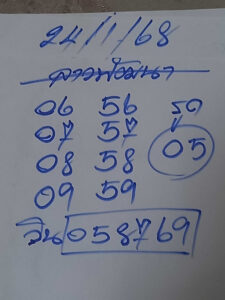 24/1/68
ลาวพัฒนา
06 56 รูด
07 57 05
08 58
09 59
วิน 058769